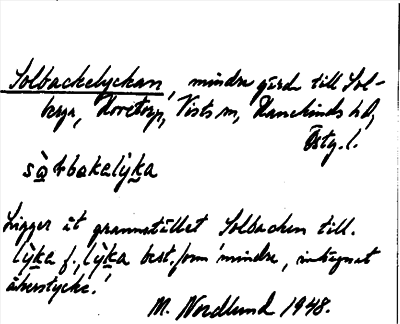 Solbackelyckan, mindre gärde till Sol-
berga, Hovetorp, Vists sn, Hanekinds hd,
Östg.l.
sò̲łbakelỳka
Ligger åt grannstället Solbacken till.
lỳka f., lỳka best. form 'mindre, inhägnat
åkerstycke.'
M. Nordlund 1948.